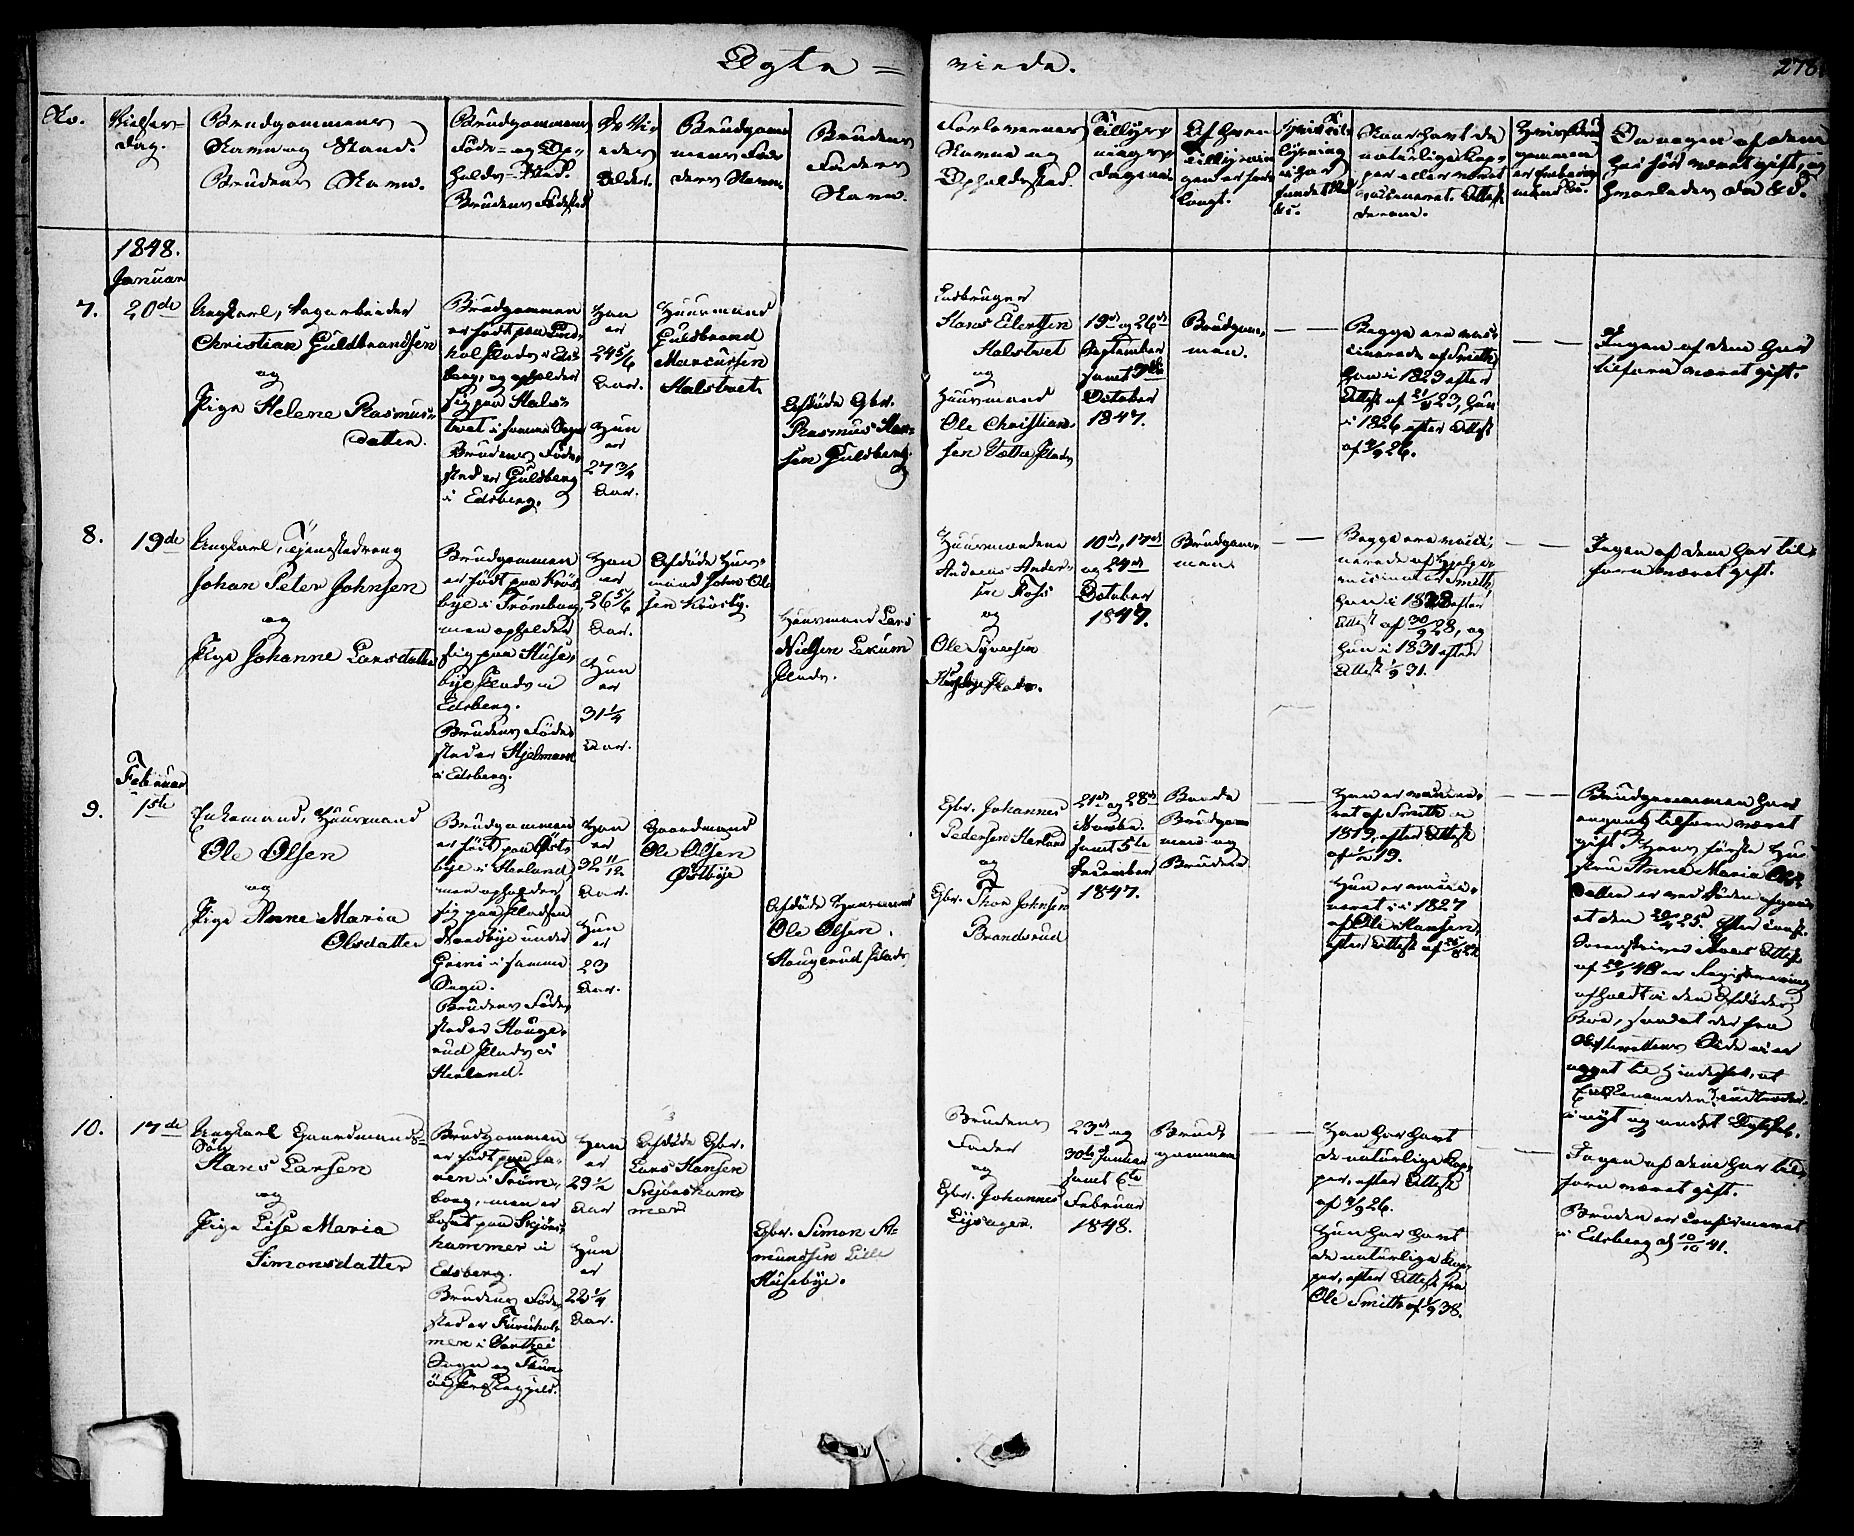 Ægte = viede.
278
No.
Vielses-
dag.
Brudgommens
Navn og Stand.
Brudens Navn.
Brudgommens
Føde- og Op-
holds-Sted.
Brudens Fødested
De Vi-
edes
Alder.
Brudgom-
mens Fa-
ders Navn.
Brudens
Faders
Navn.
Forlovernes
Navne og
Opholdssted.
Tillys-
nings-
dagene.
Af hvem
Tillysnin-
gen er for-
langt.
Naar havt de
naturlige Kop-
per eller været
vaccineret. Attest
derom.
Om nogen af dem
har før været gift, og
hvorledes da &c.
1848.
Januar
7.
20de
Ungkarl, Dagarbeider
Christian Guldbrandsen
og
Pige Helene Rasmus-
datter.
Brudgommen
er født paa
Plads i Eds-
berg, og opholder
sig paa Hals-
tvet i samme Sogn
Brudens Føde-
sted er Guldberg
i Edsberg.
Han
er
24 5/6
Aar.
Hun
er
27 3/4
Aar.
Huusmand
Guldbrand
Marcussen
Halstvet
Afdøde Gbr.
Rasmus Han-
sen Guldberg.
Hans Eilertsen
Halstvet
og
Huusmand
Ole Christian-
sen
19de og 26de
September
samt 3die
October
1847.
Brudgom-
men.
Begge ere vac-
cinerede af Smith,
han i 1823 efter
Attest af 23, hun
i 1826 efter Attest
af 26.
Ingen af dem har
tilforn været gift.
8.
19de
Ungkarl, Tjenestedreng
Johan Peter Johnsen
og
Pige Johanne Larsdatter
Brudgommen
er født paa Krøs-
bye i Trømborg,
men opholder
sig paa Huse-
bye Plads i
Edsberg.
Brudens Føde-
sted er Hjelmark
i Edsberg.
Han
er
26 5/6
Aar.
Hun
er
31 1/4
Aar.
Afdøde Huus-
mand John Ol-
sen Krosby.
Huusmand Lars
Nielsen Lekum
Plads.
Huusmændene
Andreas Ander-
sen Foss
og
Ole Syversen
10de, 17de
og 24de
October
1847.
Brudgom-
men
Begge ere vacci-
nerede af Hjelper
Smith,
han i 1828 efter
Attest af 30/9 28, og
hun i 1831 efter
Attest 1/9 31.
Ingen af dem har til-
forn været gift.
Februar
9.
1ste
Enkemand, Huusmand
Ole Olsen
og
Pige Anne Maria
Olsdatter
Brudgommen
er født paa Øst-
bye i Herland,
men opholder
sig paa Pladsen
Nordbye under
Greni i samme
Sogn.
Brudens Føde-
sted er Houge-
rud Plads i
Herland.
Han
er
32 11/12
Aar.
Hun
er
23
Aar.
Gaardmand
Ole Olsen
Østbye
Afdøde Huusmand
Ole Olsen,
Hougerud Plads
Gbr. Johannes
Pedersen Herland
og
Gbr. Thor Johnsen
Brandsrud
21de og 28de
Novbr.
samt 5te
December
1847.
Baade
Brudgom-
men og
Bruden
Han er vaccine-
ret af Smith i
1819, efter Attest
af 19.
Hun er vacci-
neret i 1827
af Ole Hansen,
efter Attest af
Brudgommen har
engang tilforn været
gift. Hans første Hu-
stru Anne Maria Ols-
datter er ved Døden afgaa-
et den
Sorenskriver Attest
af er Registrering
afholdt i den Afdødes
Boe, samt at der fra
Skifterettens Side ei er
noget til Hinder for, at
Enkemanden indtræder
i nyt og andet Ægtesk.
10.
17de
Ungkarl Gaardmands-
Søn
Hans Larsen
og
Pige Lise Maria
Simonsdatter
Brudgommen
er født paa
i Trøm-
borg, men er
bosat paa Skjøns-
hammer i
Edsberg.
Brudens Føde-
sted er Furuhol-
men i
Sogn og
Præstegjeld.
Han
er
29 1/2
Aar
Hun
er
22 1/4
Aar.
Afdøde Gbr.
Lars Hansen
Skjønsham-
mer
Gbr. Simon A-
mundsen Lille
Husebye.
Brudens
Fader
og
Gbr. Johannes
23de og
30te Januar
samt 6te
Februar
1848.
Brud-
gommen
Han har havt
de naturlige Kop-
per, efter Attest
af 26.
Hun har havt
de naturlige Kop-
per, efter Attest fra
Ole Smith af 1/9 38.
Ingen af dem har til-
forn været gift.
Bruden er confirmeret
i Edsberg d. 10/10 41.